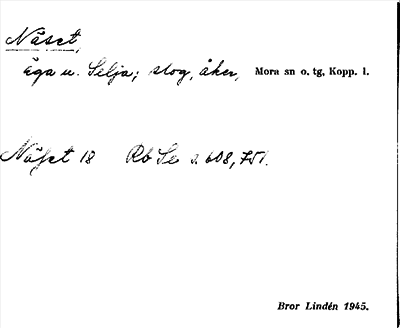 Näset,
äga u. Selja; skog, åker, Mora sn o. tg, Kopp. l.
Näset 18 Rb Se s. 608, 751.
Bror Lindén 1945.